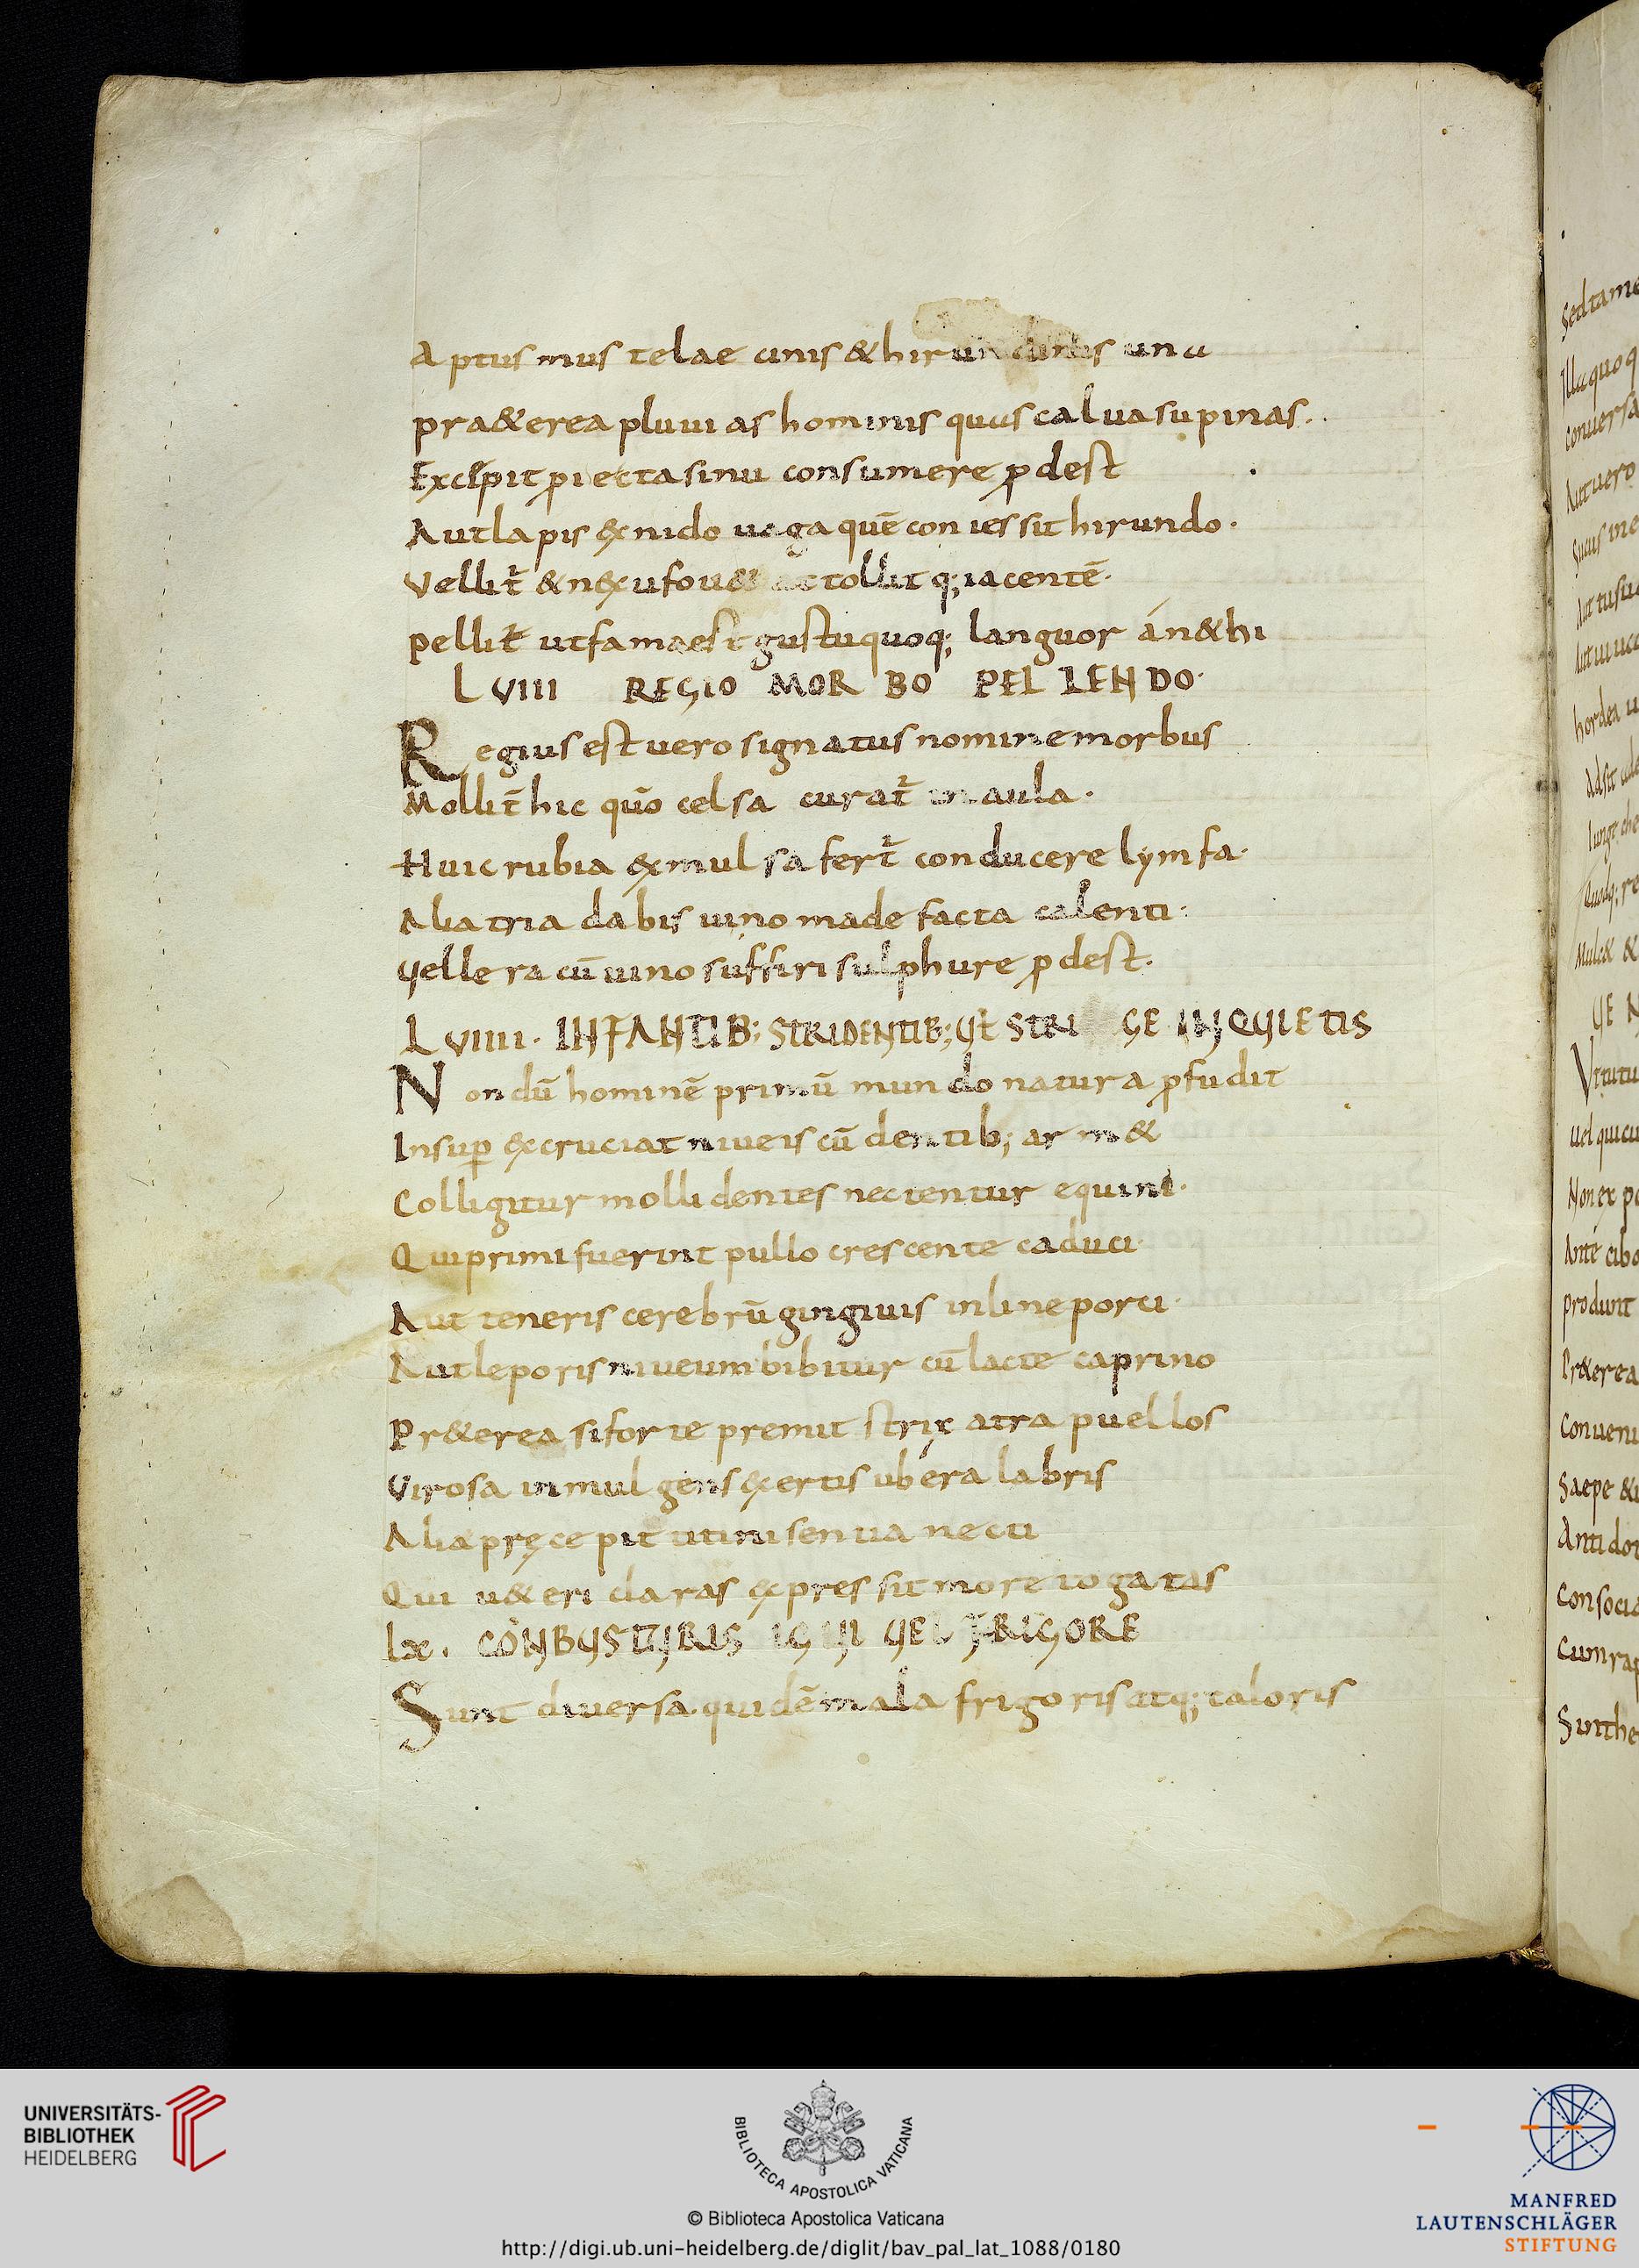 Aptus mus telae cinis & hirundinis una
pra&erea pluuias hominis quas calua supinas..
Excipit piecta sinu consumere pdest
Aut lapis exnido uaga quē coniessit hirundo.
Vellit̄ & nexu fou& attollit q; iacentē.
pellit̄ ut fama est gustu quoq; languor án&hi
LVIII REGIO MORBO PELLENDO.
Regius est uero signatus nomine morbus
Mollit̄ hic quō celsa curat̄ in aula.
Huic rubia ex mulsa fert̄ conducere lymfa.
Alia tria dabis uino madefacta calenti.
Vellera cū uino suffiri sulphure pdest.
LVIIII. INFANTIB; STRIDENTIB; VEL STRIGE INQVIETIS
Nondū hominē primū mundo natura pfudit
Insup excruciat niueis cū dentib; arm&
Colligitur molli dentes nectentur equini.
Qui primi fuerint pullo crescente caduci.
Aut teneris cerebrū gingiuis inline porci.
Aut leporis niueum bibitur cū lacte caprino
Pr&erea si forte premit strix atra puellos
Virosa inmulgens exertis ubéra labris
Alia pręcepit titini senua necti
Qui u&eri claras expressit more togatas
lx. CONBVSTVRIS IGNI VEL FRIGORE
Sunt diuersa quidē mala frigoris atq; caloris
Sed tame
Illa quoq
conuersa
Aut uero
Sucus ine
Aut
hordea u
Adsit
Iunge
Mulc& &
VE N
Vt tutu
uel quicu
Non ex po
Ante cibo
produnt
Pr&erea
Conueni
Saepe &
Antidot
Consocia
Cum rap
Sunt he
UNIVERSITÄTS-
BIBLIOTHEK
HEIDELBERG
BIBLIOTECA APOSTOLICA VATICANA
© Biblioteca Apostolica Vaticana
http://digi.ub.uni-heidelberg.de/diglit/bav_pal_lat_1088/0180
MANFRED
LAUTENSCHLÄGER
STIFTUNG